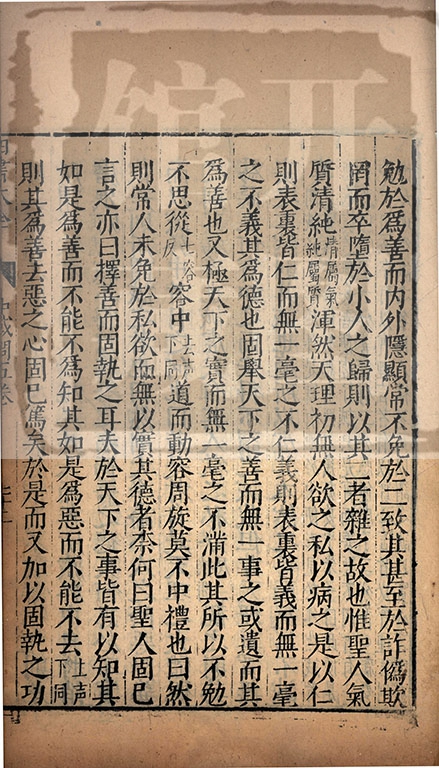 勉於爲善而內外隱顯常不免於二致其甚至於詐僞欺
罔而卒墮於小人之歸則以其二者雜之故也惟聖人氣
質清純清屬氣純屬質渾然天理初無人欲之私以病之是以仁
則表裏皆仁而無一毫之不仁義則表裏皆義而無一毫
之不義其爲德也固舉天下之善而無一事之或遺而其
爲善也又極天下之實而無一毫之不滿此其所以不勉
不思從七容反容中去声下同道而動容周旋莫不中禮也曰然
則常人未免於私欲而無以實其德者柰何曰聖人固已
言之亦曰擇善而固執之耳夫於天下之事皆有以知其
如是爲善而不能不爲知其如是爲惡而不能不去上声下同
則其爲善去惡之心固已篤矣於是而又加以固執之功